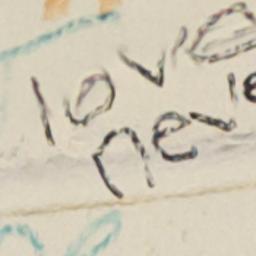 love
neve